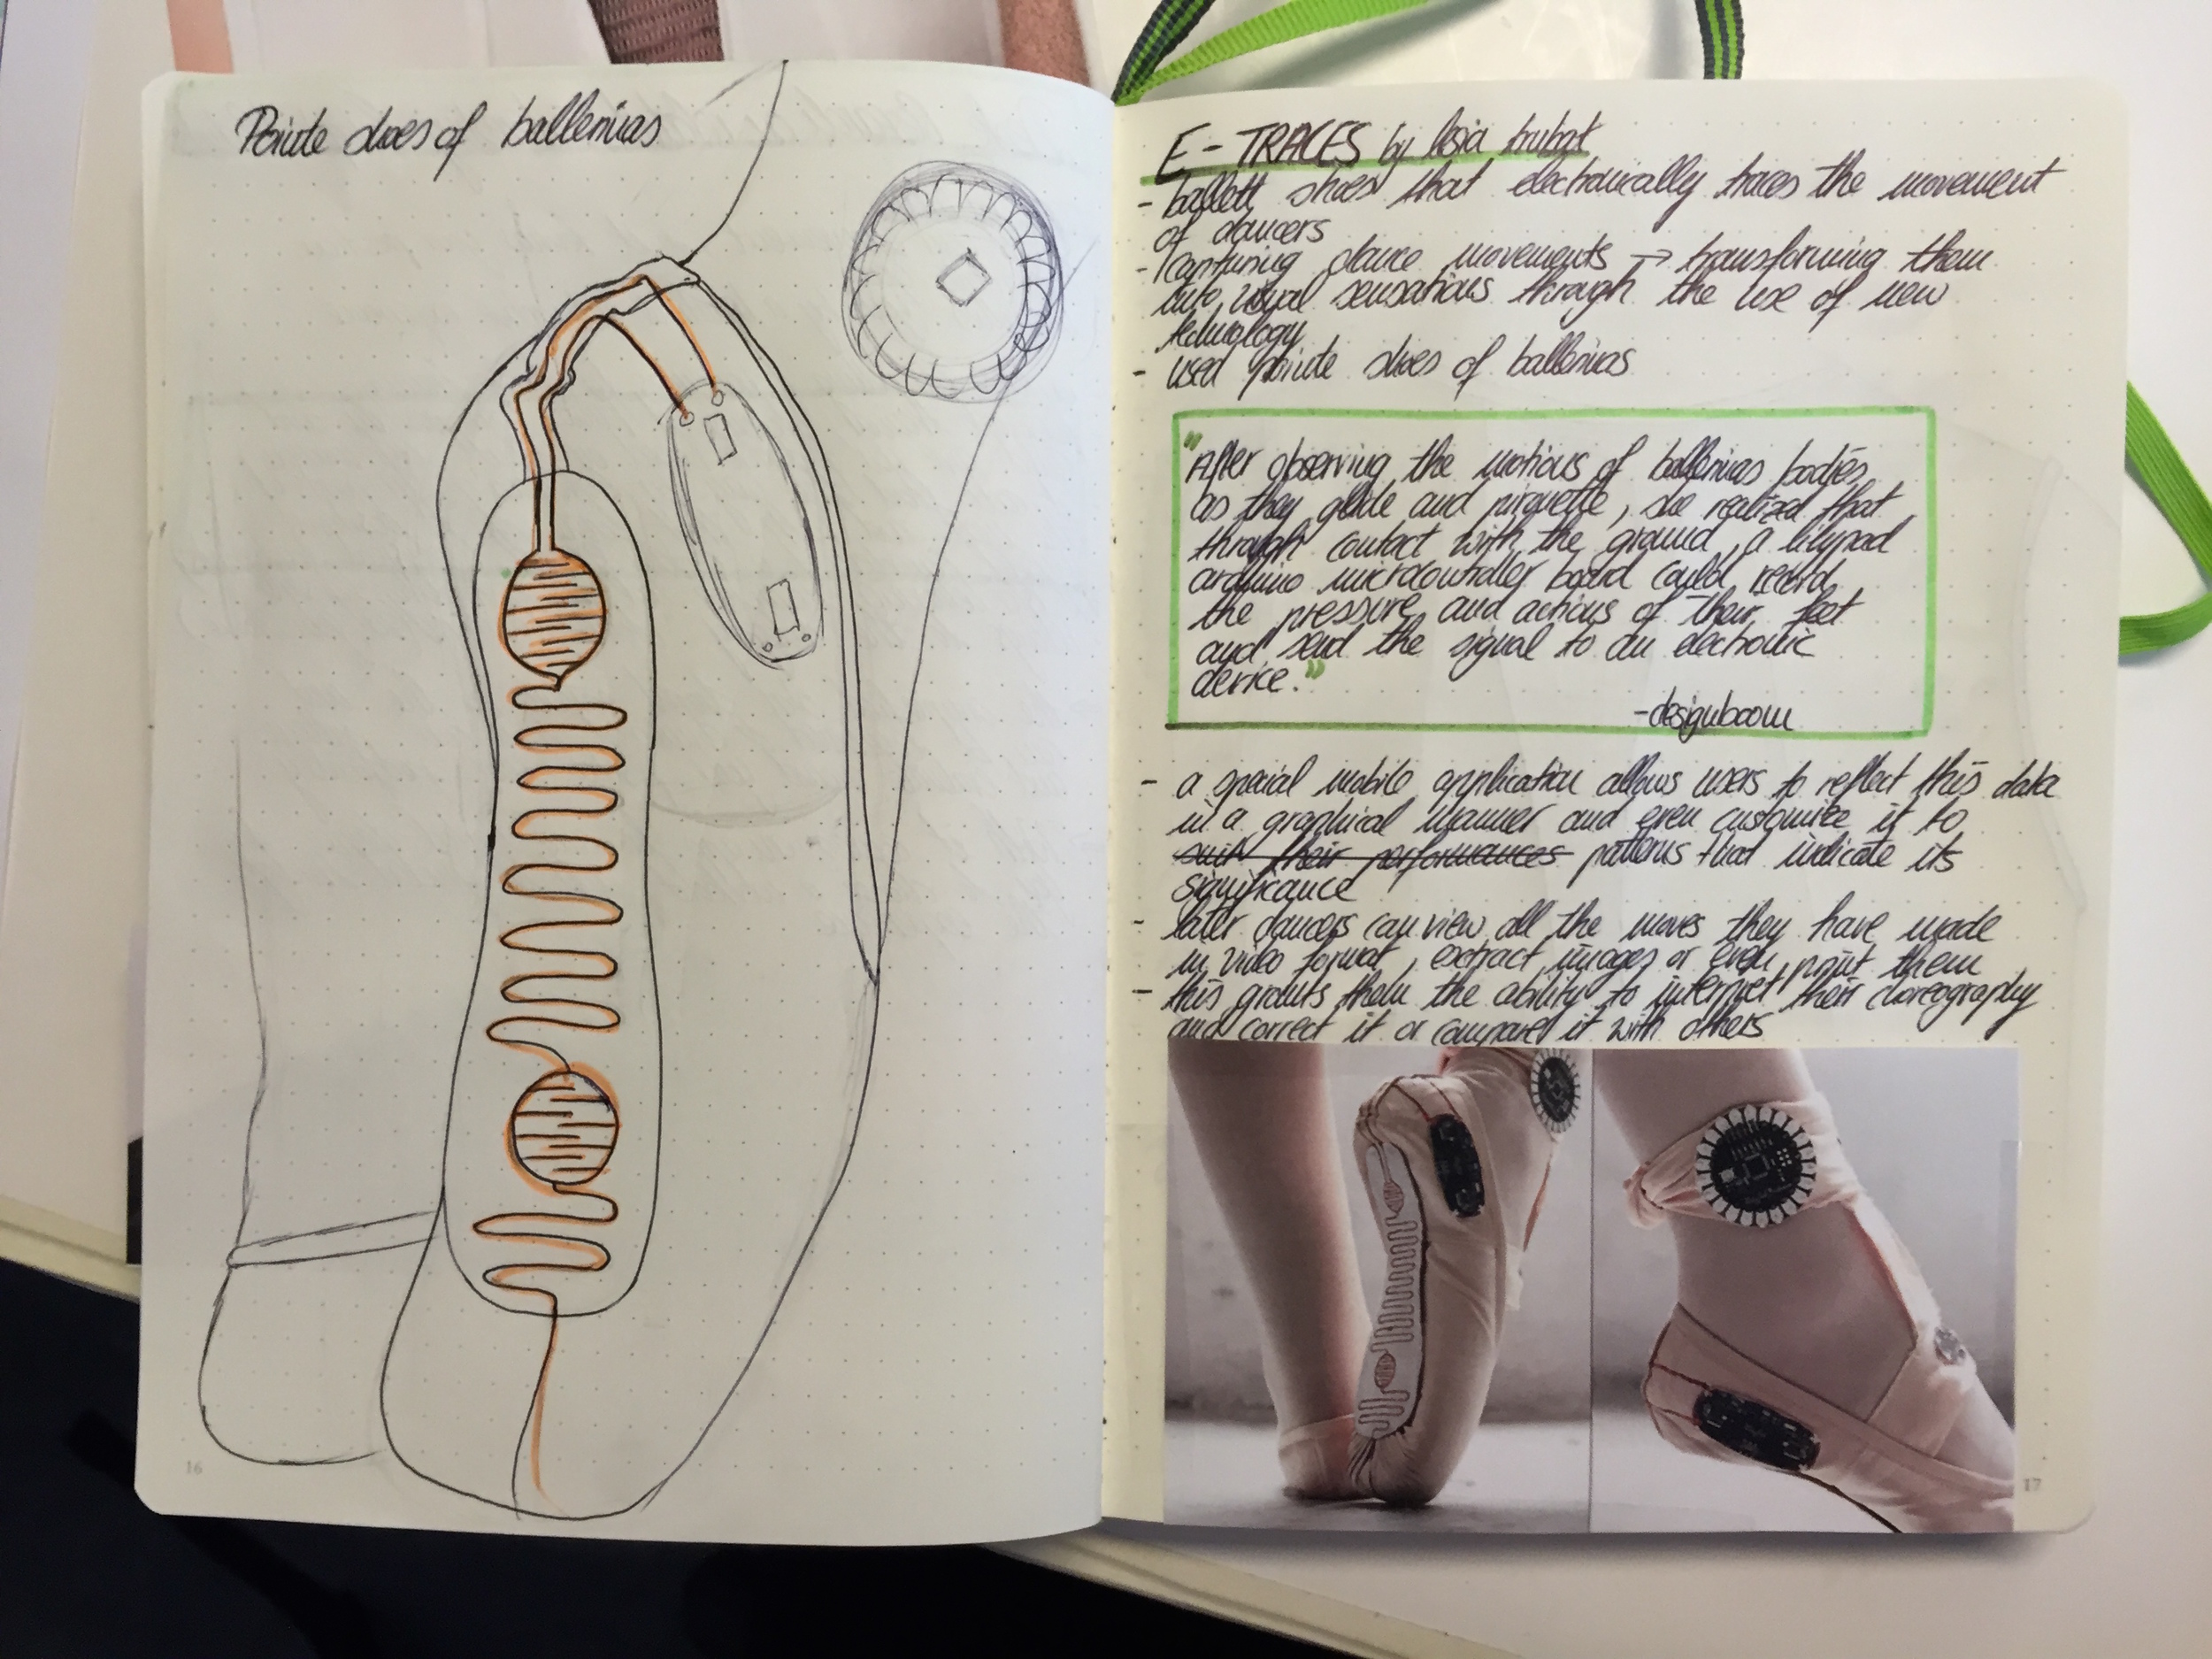 Pointe shoes of ballerinas
16
E - TRACES by lesia trubat
- ballett shoes that electronically traces the movement
of dancers
- capturing dance movements → transforming them
into visual sensations through the use of new
technology
- used pointe shoes of ballerinas
"After observing the motions of ballerinas bodies
as they glide and pirquette, she realized that
through contact with the ground, a lilypad
arduino microcontroller board could record
the pressure and actions of their feet
and send the signal to an electronic
device."
- designboom
- a special mobile application allows users to reflect this data
in a graphical manner and even customize it to
suit their performances patterns that indicate its
significance
- later dancers can view all the moves they have made
in video format, extract images or even print them
- this grants them the ability to interpret their choreography
and correct it or compare it with others
17